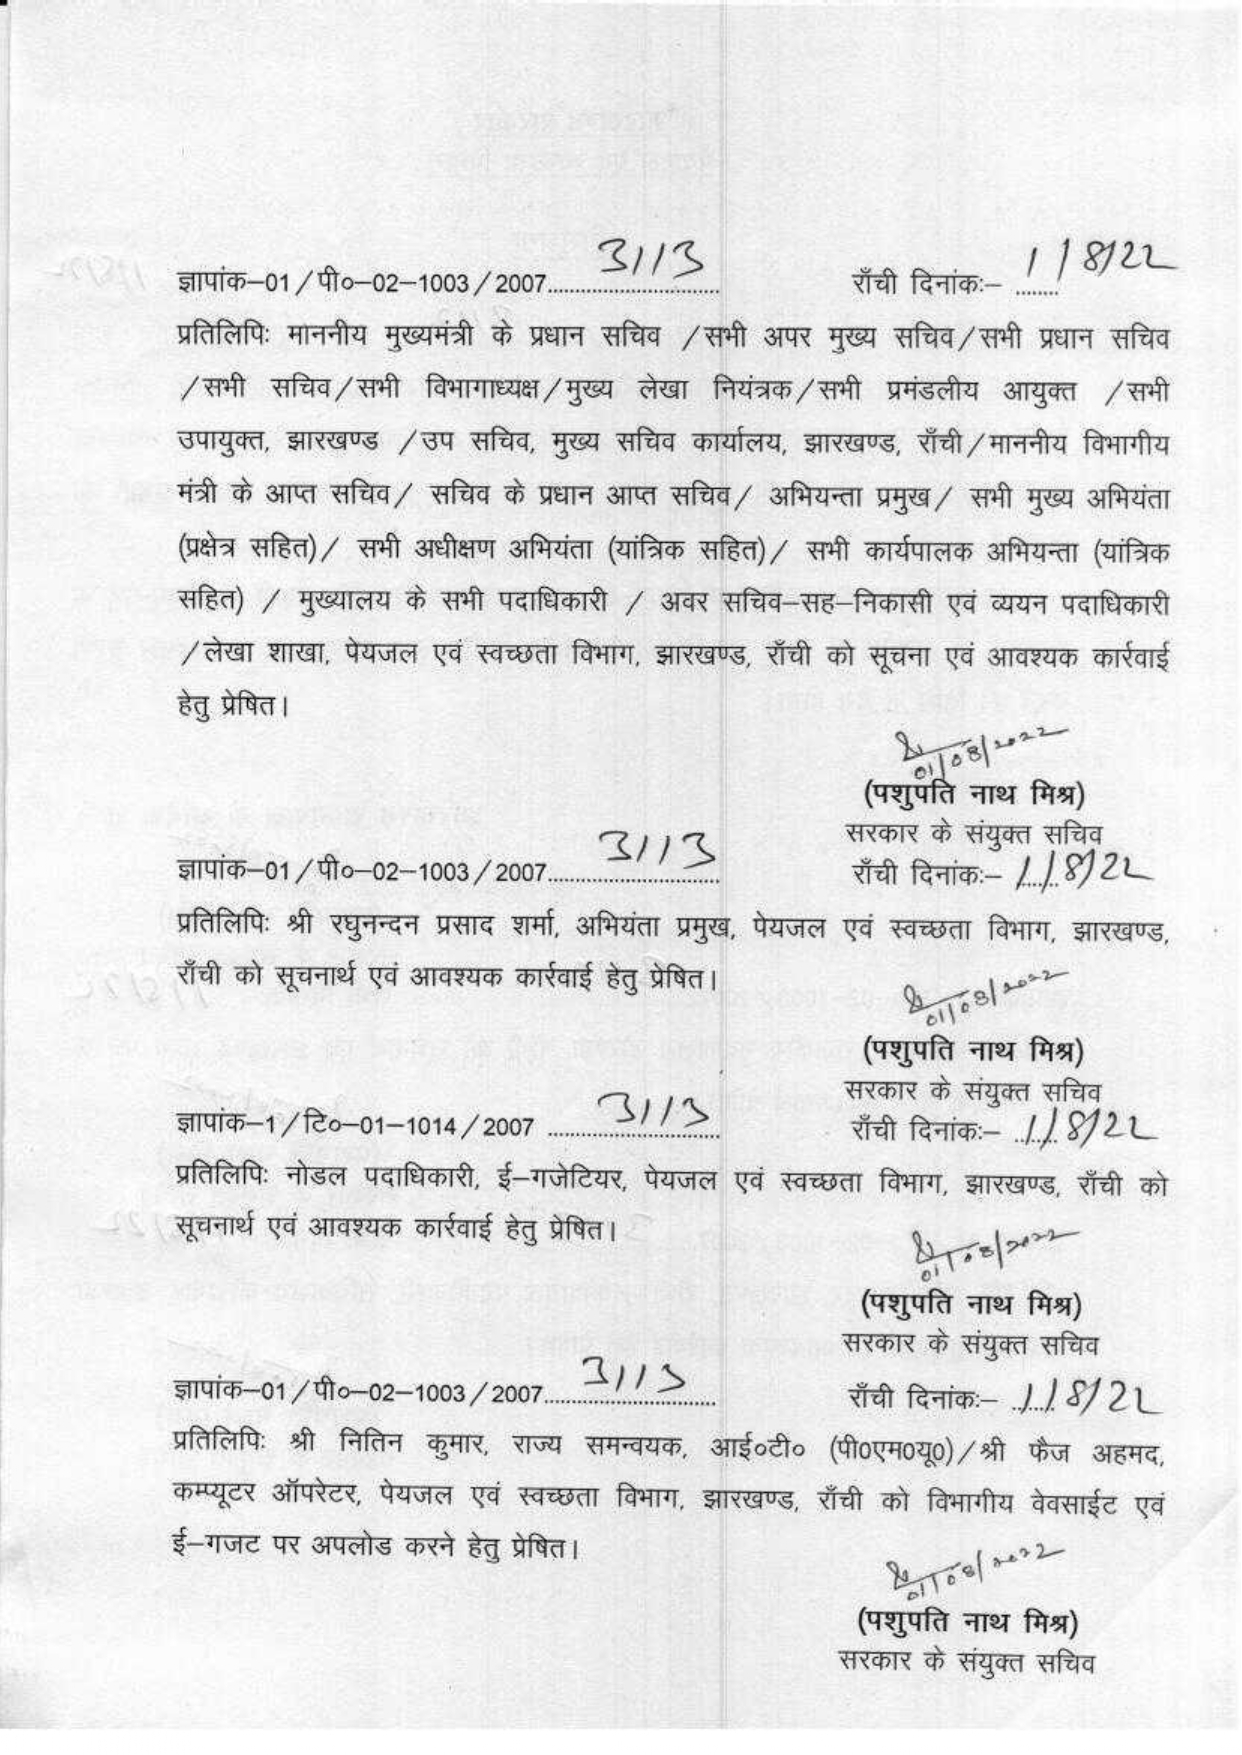 ज्ञापांक–01/पी०–02–1003/2007..............3113.............. राँची दिनांकः– 1/8/22
प्रतिलिपिः माननीय मुख्यमंत्री के प्रधान सचिव /सभी अपर मुख्य सचिव/सभी प्रधान सचिव
/सभी सचिव/सभी विभागाध्यक्ष/मुख्य लेखा नियंत्रक/सभी प्रमंडलीय आयुक्त /सभी
उपायुक्त, झारखण्ड /उप सचिव, मुख्य सचिव कार्यालय, झारखण्ड, राँची/माननीय विभागीय
मंत्री के आप्त सचिव/ सचिव के प्रधान आप्त सचिव/ अभियन्ता प्रमुख/ सभी मुख्य अभियंता
(प्रक्षेत्र सहित)/ सभी अधीक्षण अभियंता (यांत्रिक सहित)/ सभी कार्यपालक अभियन्ता (यांत्रिक
सहित) / मुख्यालय के सभी पदाधिकारी / अवर सचिव–सह–निकासी एवं व्ययन पदाधिकारी
/लेखा शाखा, पेयजल एवं स्वच्छता विभाग, झारखण्ड, राँची को सूचना एवं आवश्यक कार्रवाई
हेतु प्रेषित।
01/08/2022
(पशुपति नाथ मिश्र)
सरकार के संयुक्त सचिव
ज्ञापांक–01/पी०–02–1003/2007..............3113.............. राँची दिनांकः– 1/8/22
प्रतिलिपिः श्री रघुनन्दन प्रसाद शर्मा, अभियंता प्रमुख, पेयजल एवं स्वच्छता विभाग, झारखण्ड,
राँची को सूचनार्थ एवं आवश्यक कार्रवाई हेतु प्रेषित।
01/08/2022
(पशुपति नाथ मिश्र)
सरकार के संयुक्त सचिव
ज्ञापांक–1/टि०–01–1014/2007 ..............3113.............. राँची दिनांकः– 1/8/22
प्रतिलिपिः नोडल पदाधिकारी, ई–गजेटियर, पेयजल एवं स्वच्छता विभाग, झारखण्ड, राँची को
सूचनार्थ एवं आवश्यक कार्रवाई हेतु प्रेषित।
01/08/2022
(पशुपति नाथ मिश्र)
सरकार के संयुक्त सचिव
ज्ञापांक–01/पी०–02–1003/2007..............3113.............. राँची दिनांकः– 1/8/22
प्रतिलिपिः श्री नितिन कुमार, राज्य समन्वयक, आई०टी० (पी0एम0यू0)/श्री फैज अहमद,
कम्प्यूटर ऑपरेटर, पेयजल एवं स्वच्छता विभाग, झारखण्ड, राँची को विभागीय वेवसाईट एवं
ई–गजट पर अपलोड करने हेतु प्रेषित।
01/08/2022
(पशुपति नाथ मिश्र)
सरकार के संयुक्त सचिव